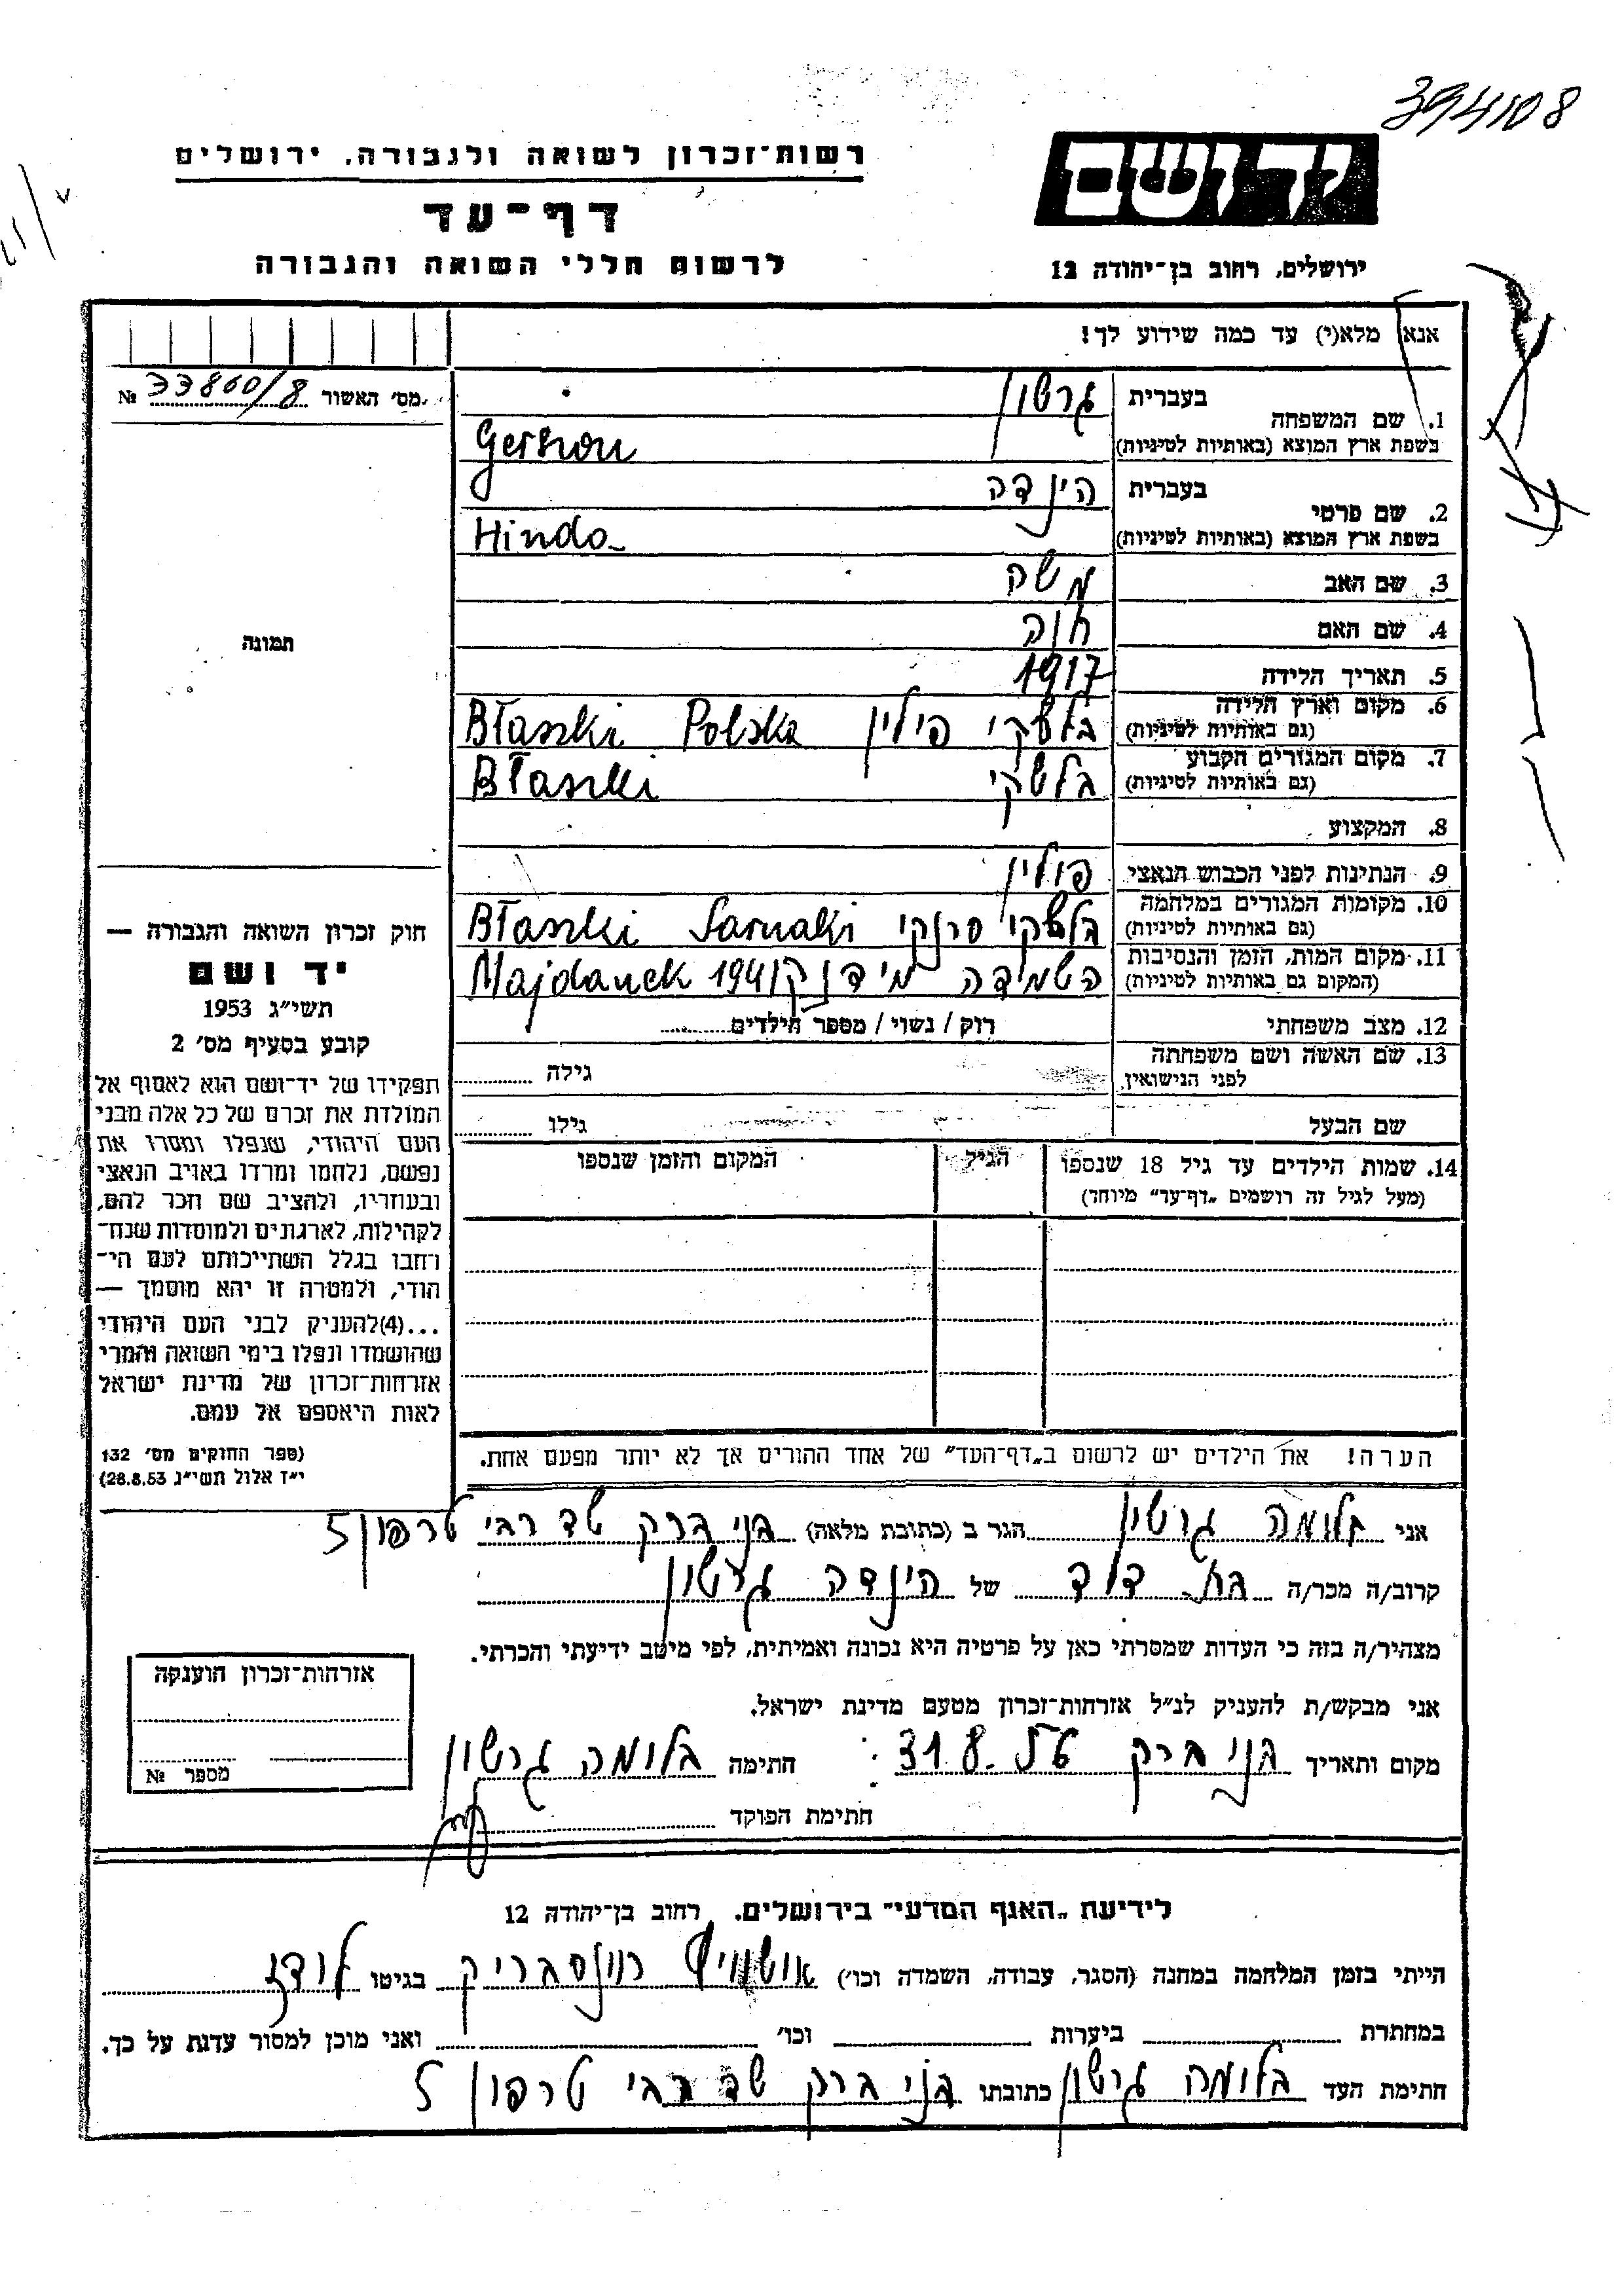 394108
יד ושם
רשות־זכרון לשואה ולגבורה, ירושלים
דף־עד
לרשום חללי השואה והגבורה
ירושלים, רחוב בן־יהודה 12
אנא מלא(י) עד כמה שידוע לך!
מס׳ האשור № 33860/8
1. שם המשפחה בעברית גרשון
בשפת ארץ המוצא (באותיות לטיניות) Gerszon
2. שם פרטי בעברית הינדה
בשפת ארץ המוצא (באותיות לטיניות) Hinda
3. שם האב משה
4. שם האם חוה
תמונה
5. תאריך הלידה 1917
6. מקום וארץ הלידה בלשקי פולין Błaszki Polska
(גם באותיות לטיניות)
7. מקום המגורים הקבוע בלשקי Błaszki
(גם באותיות לטיניות)
8. המקצוע
9. הנתינות לפני הכבוש הנאצי פולין
10. מקומות המגורים במלחמה בלשקי סרנקי Błaszki Sarnaki
(גם באותיות לטיניות)
11. מקום המות, הזמן והנסיבות השמדה מידנק 1941 Majdanek
(המקום גם באותיות לטיניות)
12. מצב משפחתי רוק / נשוי / מספר הילדים
13. שם האשה ושם משפחתה גילה
לפני הנישואין
שם הבעל גילו
14. שמות הילדים עד גיל 18 שנספו הגיל המקום והזמן שנספו
(מעל לגיל זה רושמים „דף־עד״ מיוחד)
חוק זכרון השואה והגבורה —
יד ושם
תשי״ג 1953
קובע בסעיף מס׳ 2
תפקידו של יד־ושם הוא לאסוף אל
המולדת את זכרם של כל אלה מבני
העם היהודי, שנפלו ומסרו את
נפשם, נלחמו ומרדו באויב הנאצי
ובעוזריו, ולהציב שם וזכר להם,
לקהילות, לארגונים ולמוסדות שנח־
רבו בגלל השתייכותם לעם הי־
הודי, ולמטרה זו יהא מוסמך —
...(4)להעניק לבני העם היהודי
שהושמדו ונפלו בימי השואה והמרי
אזרחות־זכרון של מדינת ישראל
לאות היאספם אל עמם.
(ספר החוקים מס׳ 132
י״ז אלול תשי״ג 28.8.53)
הערה! את הילדים יש לרשום ב„דף־העד״ של אחד ההורים אך לא יותר מפעם אחת.
אני בלומה גרשון הגר ב (כתובת מלאה) בני ברק שד רבי טרפון 5
קרוב/ה מכר/ה בת דוד של הינדה גרשון
מצהיר/ה בזה כי העדות שמסרתי כאן על פרטיה היא נכונה ואמיתית, לפי מיטב ידיעתי והכרתי.
אני מבקש/ת להעניק לנ״ל אזרחות־זכרון מטעם מדינת ישראל.
מקום ותאריך בני ברק 31.8. חתימה בלומה גרשון
חתימת הפוקד
אזרחות־זכרון הוענקה
מספר №
לידיעת „האגף המדעי״ בירושלים, רחוב בן־יהודה 12
הייתי בזמן המלחמה במחנה (הסגר, עבודה, השמדה וכו׳) אושוויץ רוונסבריק בגיטו לודז
במחתרת ביערות וכו׳ ואני מוכן למסור עדות על כך.
חתימת העד בלומה גרשון כתובתו בני ברק שד רבי טרפון 5